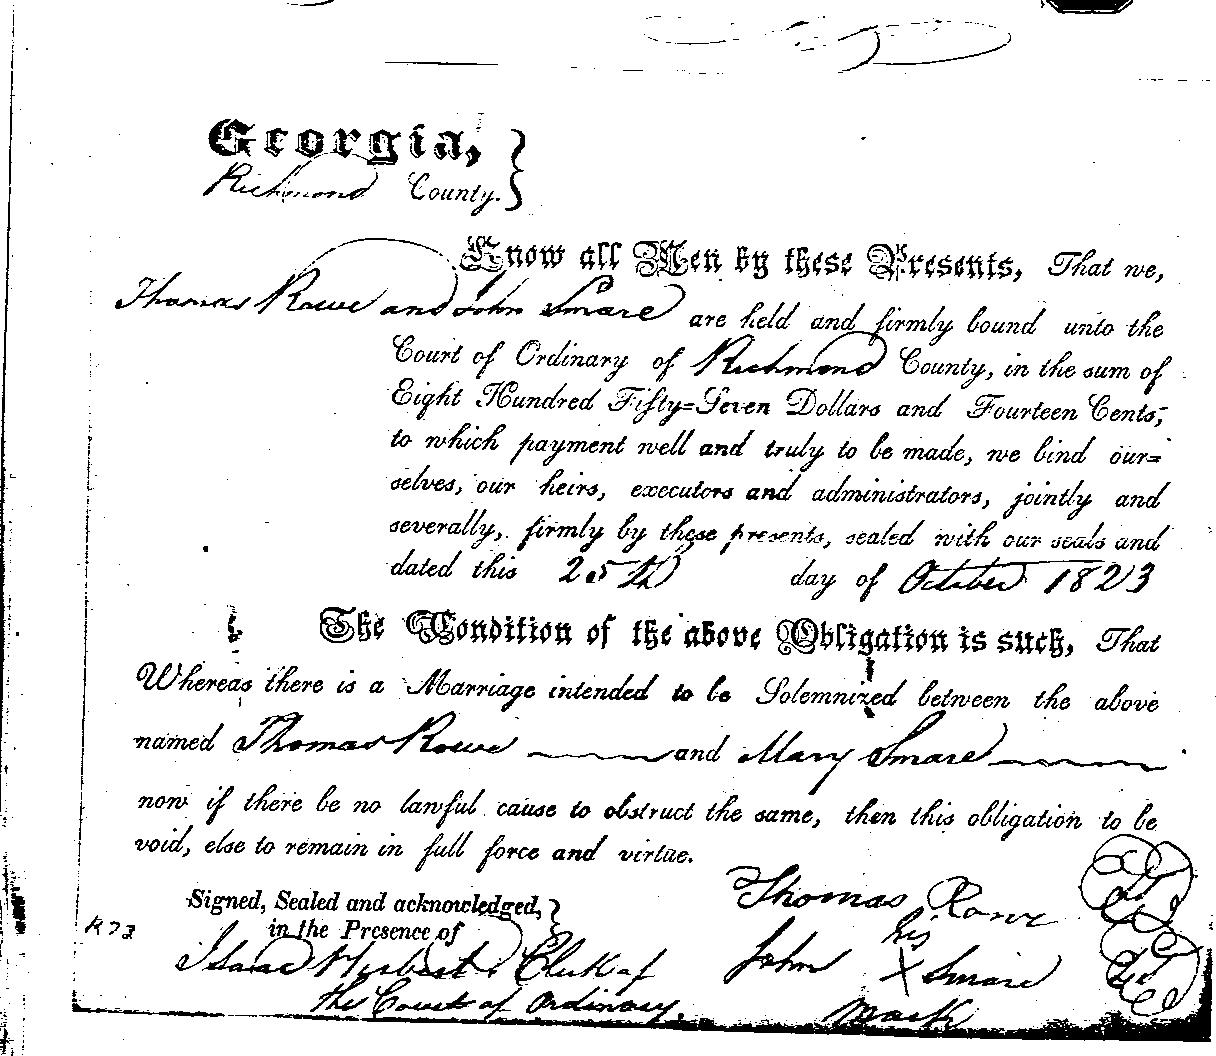 Georgia,
Richmond County.
Know all Men by these Presents, That we,
Thomas Rowe and John Smare are held and firmly bound unto the
Court of Ordinary of Richmond County, in the sum of
Eight Hundred Fifty=Seven Dollars and Fourteen Cents,
to which payment well and truly to be made, we bind our=
selves, our heirs, executors and administrators, jointly and
severally, firmly by these presents, sealed with our seals and
dated this 25th day of October 1823
The Condition of the above Obligation is such, That
Whereas there is a Marriage intended to be Solemnized between the above
named Thomas Rowe and Mary Smare
now if there be no lawful cause to obstruct the same, then this obligation to be
void, else to remain in full force and virtue.
Signed, Sealed and acknowledged,
in the Presence of
Isaac Herbert Clerk of
the Court of Ordinary.
R 73
Thomas Rowe
his
John X Smare
mark